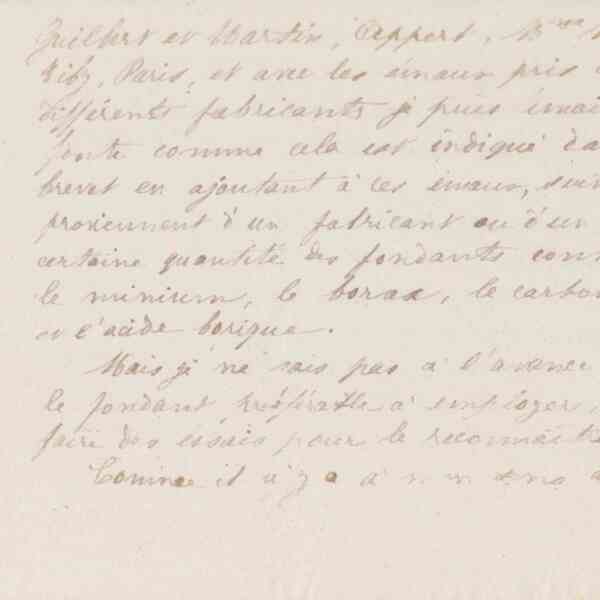 Guilbert et Martin, Appert, Mme
Paris, et avec les émaux pris
différents fabricants je puis émai
fonte comme cela est indiqué da
brevet en ajoutant à ces émaux, suiv
proviennent d'un fabricant ou d'un
certaine quantité des fondants conn
le minium, le borax, le carbon
et l'acide borique.
Mais je ne sais pas à l'avance
le fondant préférable à employer,
faire des essais pour le reconnaître
Comme il n'y a